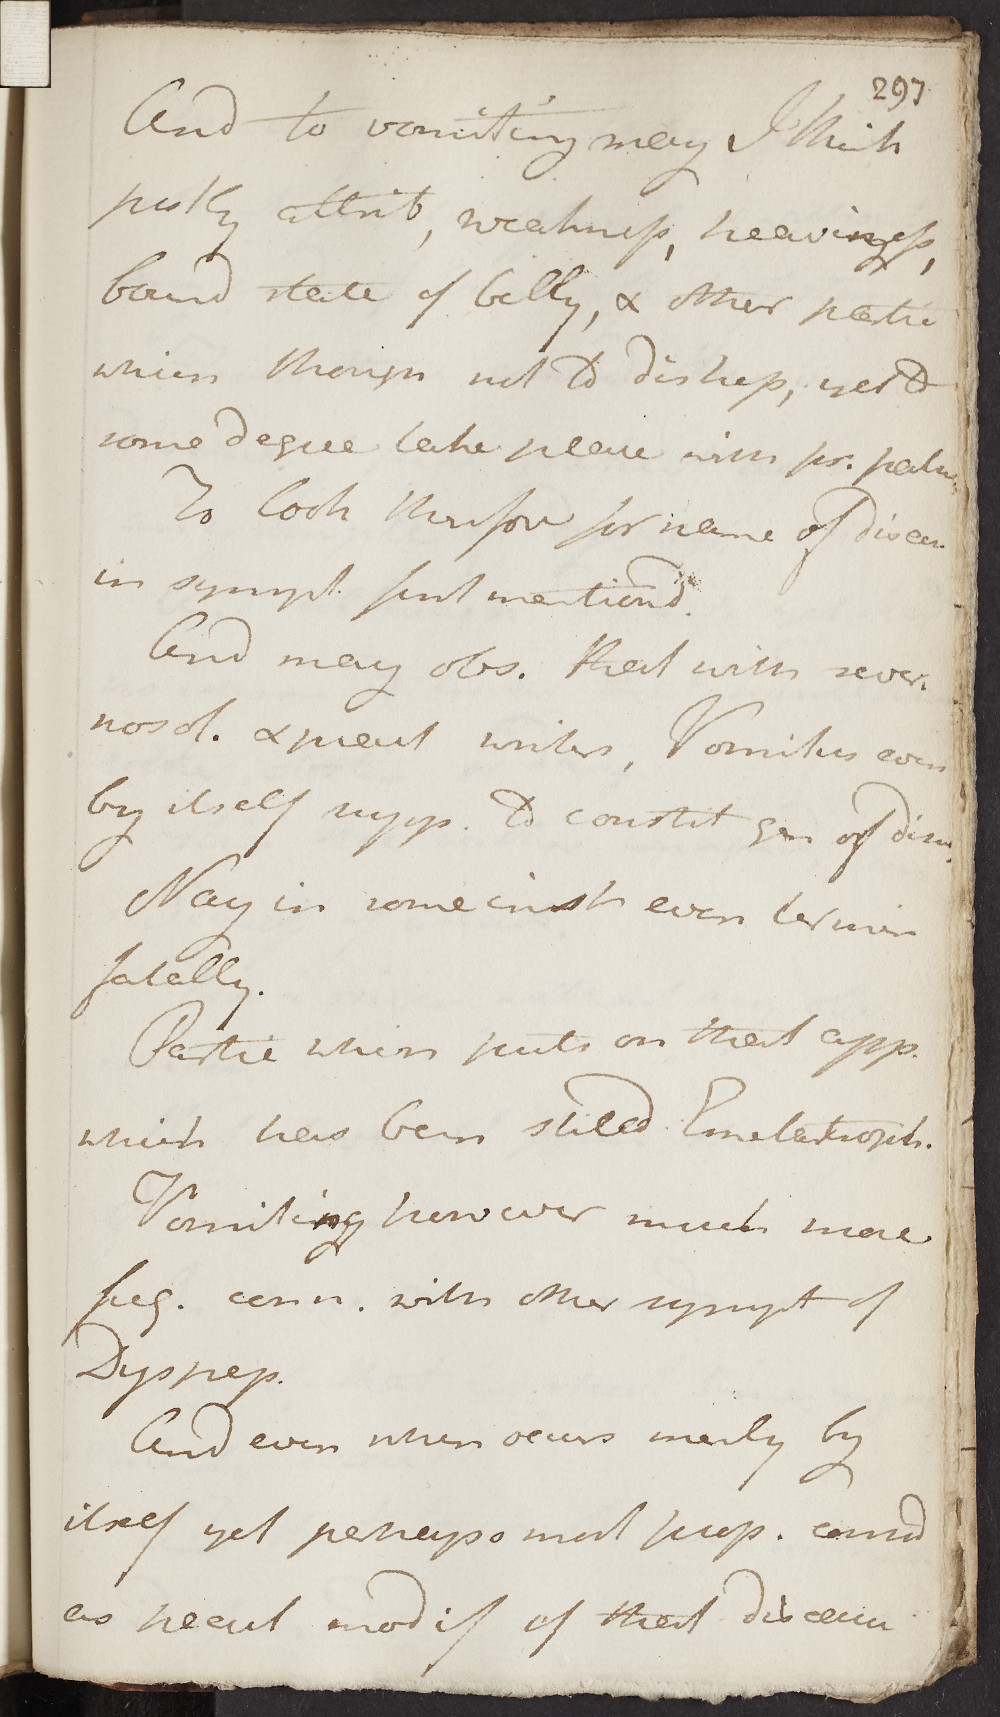 297
And to vomiting may I think
justly attrib, weakness, heaviness,
bound state of belly, & other partic
which though not to dishep, yet to
some degree take place with pr. palm
To look therefor for name of disea
in sympt. first mentiond.
And may obs. that with sever.
nosol. & pract writers, Vomitus even
by itself supp. to constit gen of dise
Nay in some inst even termin
fatally.
Partic when puts on that app.
which has been stiled Emetatroph.
Vomiting however much more
freq. conn. with other sympt of
Dyspep.
And even when occurs merely by
itself yet perhaps most prop. consid
as pecul modif of that disease